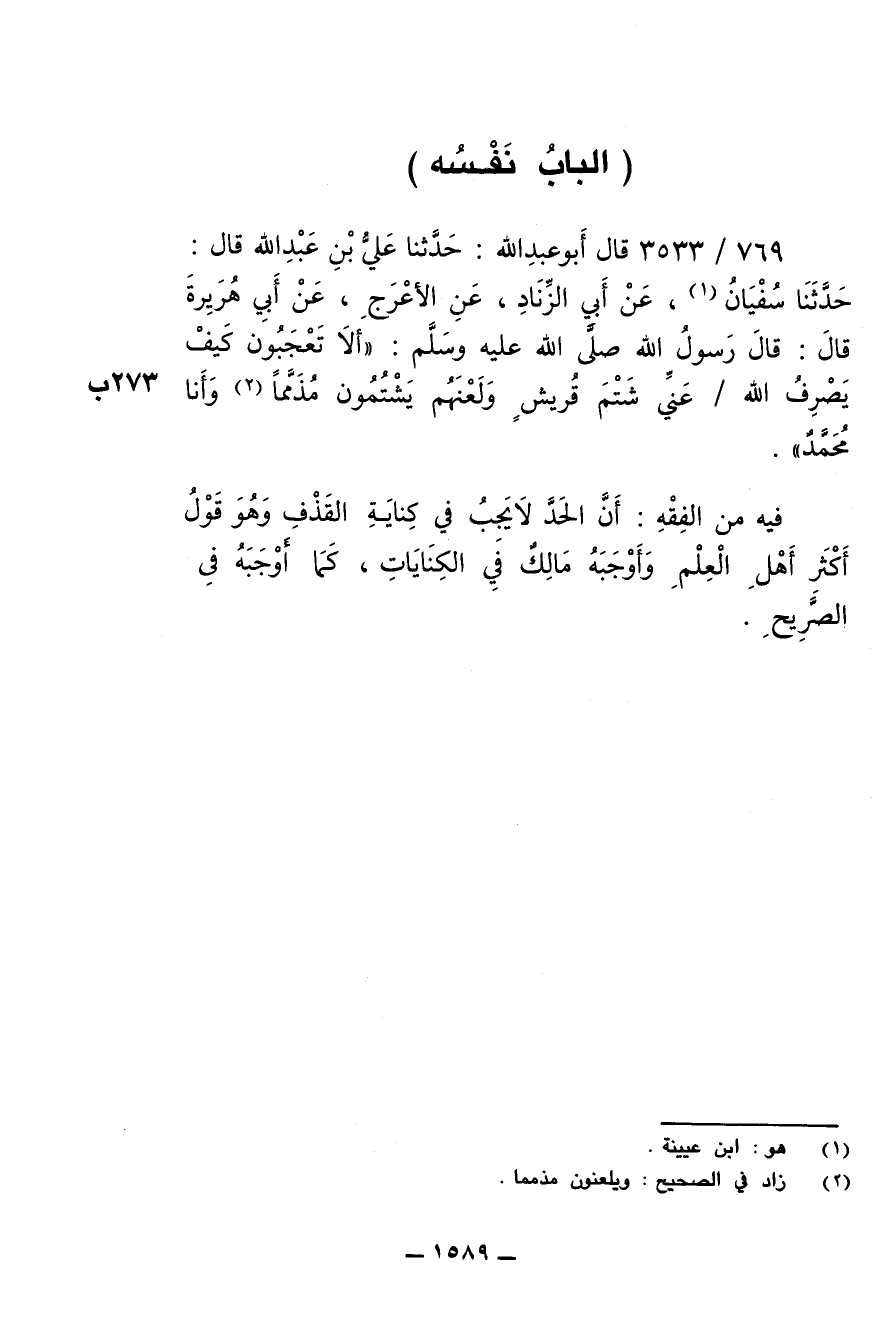 ( البابُ نَفْسُه )
٧٦٩ / ٣٥٣٣ قال أَبوعبدِالله : حَدَّثنا عَليُّ بْنِ عَبْدِالله قال :
حَدَّثَنَا سُفْيَانُ (١) ، عَنْ أَبي الزِّنَادِ ، عَنِ الأعْرَجِ ، عَنْ أَبي هُرَيرةَ
قالَ : قالَ رَسولُ الله صلَّى الله عليه وسَلَّم : «ألاَ تَعْجَبُون كَيفْ
يَصْرِفُ الله / عَنِّي شَتْمَ قُريشٍ وَلَعْنَهُم يَشْتُمُون مُذَمَّماً (٢) وَأَنا
٢٧٣ب
مُحَمَّدٌ» .
فيه من الفِقْهِ : أَنَّ الحَدَّ لاَيَجِبُ في كِنايَةِ القَذْفِ وَهُوَ قَوْلُ
أَكْثَرِ أَهْلِ الْعِلْمِ وَأَوْجَبَهُ مَالِكٌ فِي الكِنَايَاتِ ، كَمَا أَوْجَبَهُ فِي
الصَّرِيحِ .
(١) هو : ابن عيينة .
(٢) زاد في الصحيح : ويلعنون مذمما .
ــ ١٥٨٩ ــ